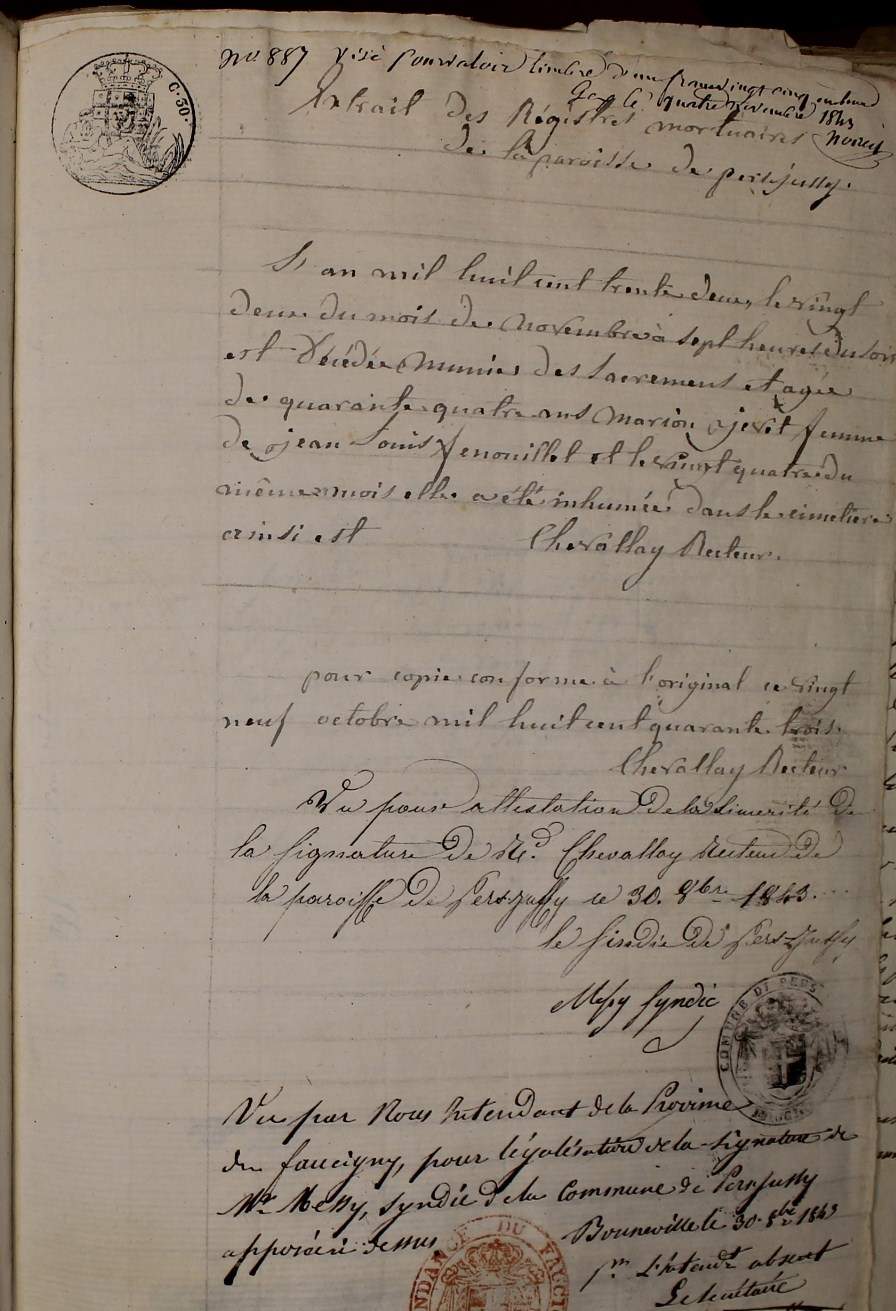 C. 30.
No 887 Visé pour valoir timbre d'un franc vingt cinq
G le quatre novembre 1843
Extrait des Régistres mortuaires
de la paroisse de persjussy.
L'an mil huit cent trente deux, le vingt
deux du mois de novembre à sept heures du soir
est décédée munie des sacrements et agée
de quarante quatre ans Marion femme
de jean Louis fenouillet et le vingt quatre du
même mois elle a été inhumée dans le cimetiere
ainsi est Chevallay Recteur.
pour copie conforme à l'original ce vingt
neuf octobre mil huit cent quarante trois.
Chevallay Recteur
Vu pour attestation de la sincerité de
la signature de Rd. Chevallay recteur de
la paroisse de Pers-Jussy ce 30. 8bre 1843.
le sindic de Pers-Jussy
Messy syndic
COMUNE DI PERS
Vu par Nous Intendant de la Province
du faucigny, pour légalisation de la signature de
Mr Messy, syndic de la Commune de Persjussy
apposée ci dessus
Bonneville le 30 8bre 1843
pr L'Intendt absent
Le secrétaire
INTENDANCE DU FAUCI